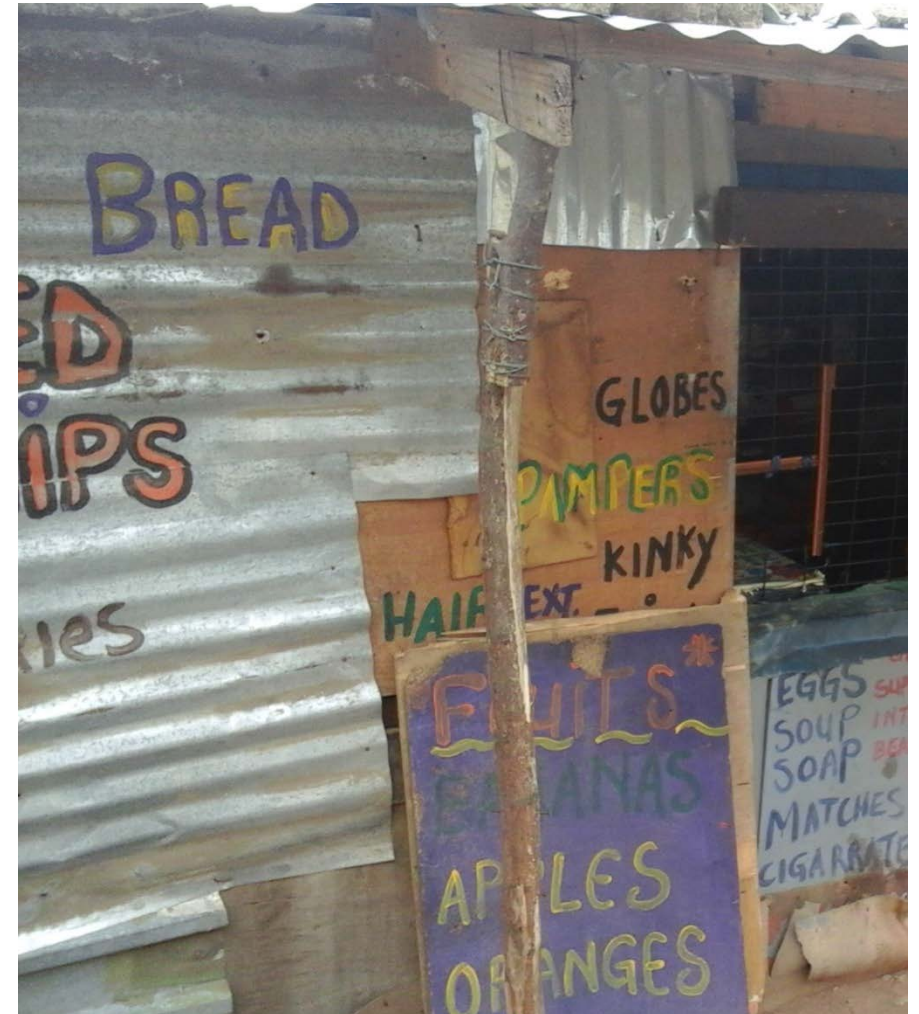 BREAD
ED
IPS
ries
GLOBES
PAMPERS
KINKY
HAIR EXT.
FRUITS
BANANAS
APPLES
ORANGES
EGGS
SOUP
SOAP
MATCHES
CIGARRATE
SUP
INT
BEA